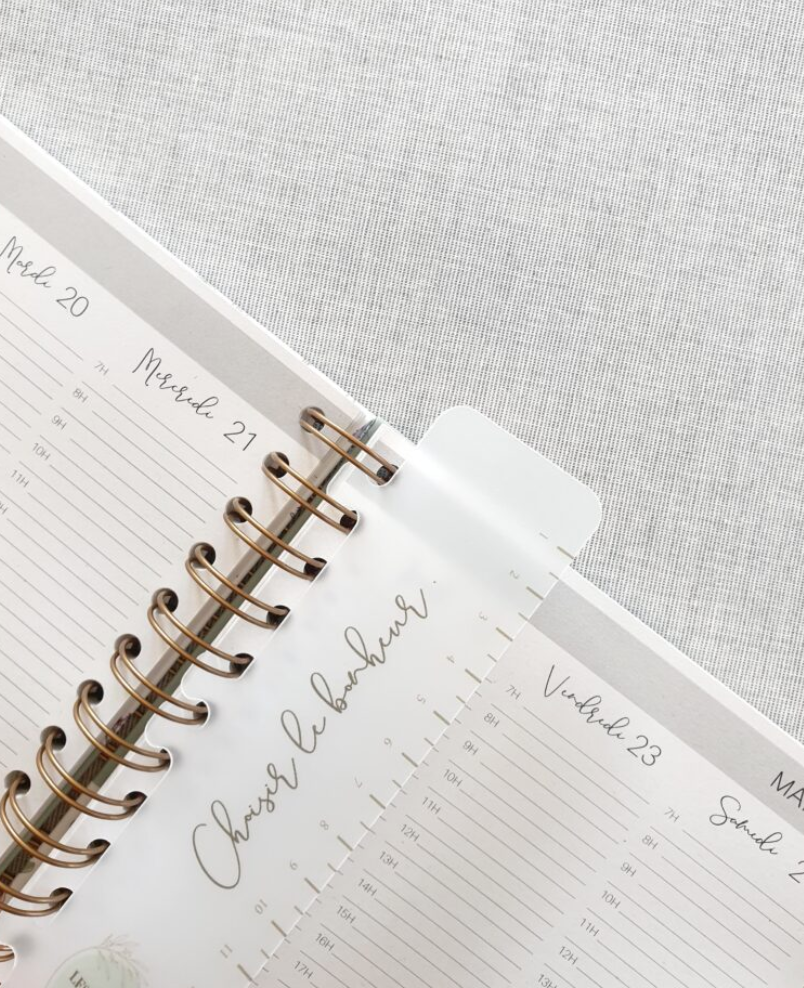 Mardi 20
Mercredi 21
7H
8H
9H
10H
11H
Choisir le bonheur.
1
2
3
4
5
6
7
8
9
10
11
Vendredi 23
7H
8H
9H
10H
11H
12H
13H
14H
15H
16H
17H
Samedi
7H
8H
9H
10H
11H
12H
13H